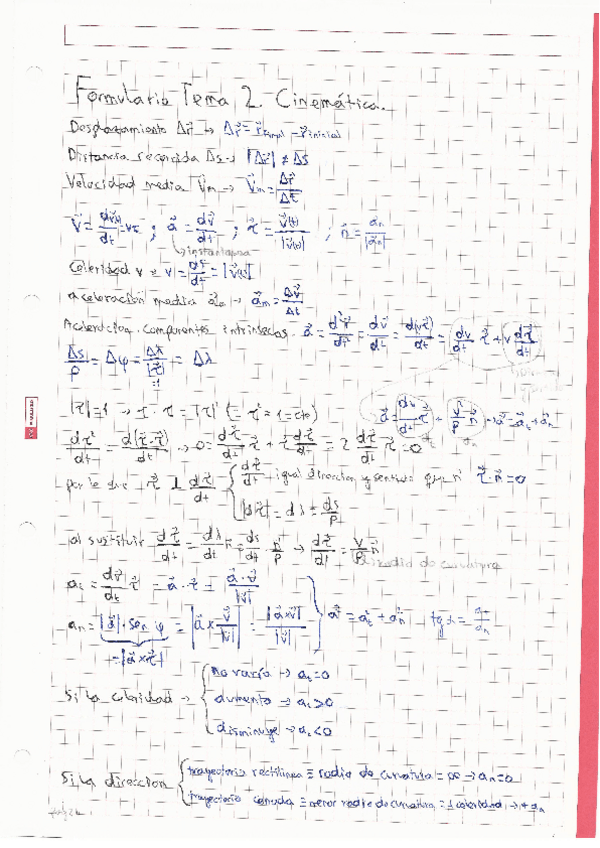 Formulario Tema 2. Cinemática.
Desplazamiento Δr⃗ → Δr⃗ = r⃗final − r⃗inicial
Distancia recorrida Δs → |Δr⃗| ≠ Δs
Velocidad media v⃗m → v⃗m = Δr⃗/Δt
a⃗ = dv⃗/dt ; τ⃗ = v⃗(t)/|v⃗(t)| ; n⃗ = a⃗n/|a⃗n|
↳ instantanea
Celeridad v
aceleración media → a⃗m = Δv⃗/Δt
Aceleracion componentes intrinsecas a⃗ = d²r⃗/dt² = dv⃗/dt = d(vτ⃗)/dt = dv/dt τ⃗ + v dτ⃗/dt
Δs/ρ = Δφ = Δλ/|τ⃗| = Δλ
a⃗ = dv/dt τ⃗ + v²/ρ n⃗ → a⃗ = a⃗t + a⃗n
dτ²/dt = d(τ⃗·τ⃗)/dt → 0 = dτ⃗/dt τ⃗ + τ⃗ dτ⃗/dt = 2 dτ⃗/dt τ⃗ = 0
por lo que τ⃗ ⊥ dτ⃗/dt { dτ⃗/dt igual direccion y sentido que n⃗ τ⃗·n⃗ = 0
|dτ⃗| = dλ = ds/ρ
al sustituir dτ⃗/dt = dλ/dt n⃗ = ds/dt · n⃗/ρ → dτ⃗/dt = v/ρ n⃗
radio de curvatura
at = dv⃗/dt τ⃗ = a⃗·τ⃗ = a⃗·v⃗/|v⃗|
an = |a⃗|·sen φ = |a⃗ × v⃗/|v⃗|| = |a⃗×v⃗|/|v⃗| } a² = at² + an²
= |a⃗×τ⃗|
Si la celeridad → { no varía → at = 0
aumenta → at > 0
disminuye → at < 0
Si la direccion { trayectoria rectilinea ≡ radio de curvatura = ∞ → an = 0
trayectoria curvada ≡ menor radio de curvatura = celeridad → + an